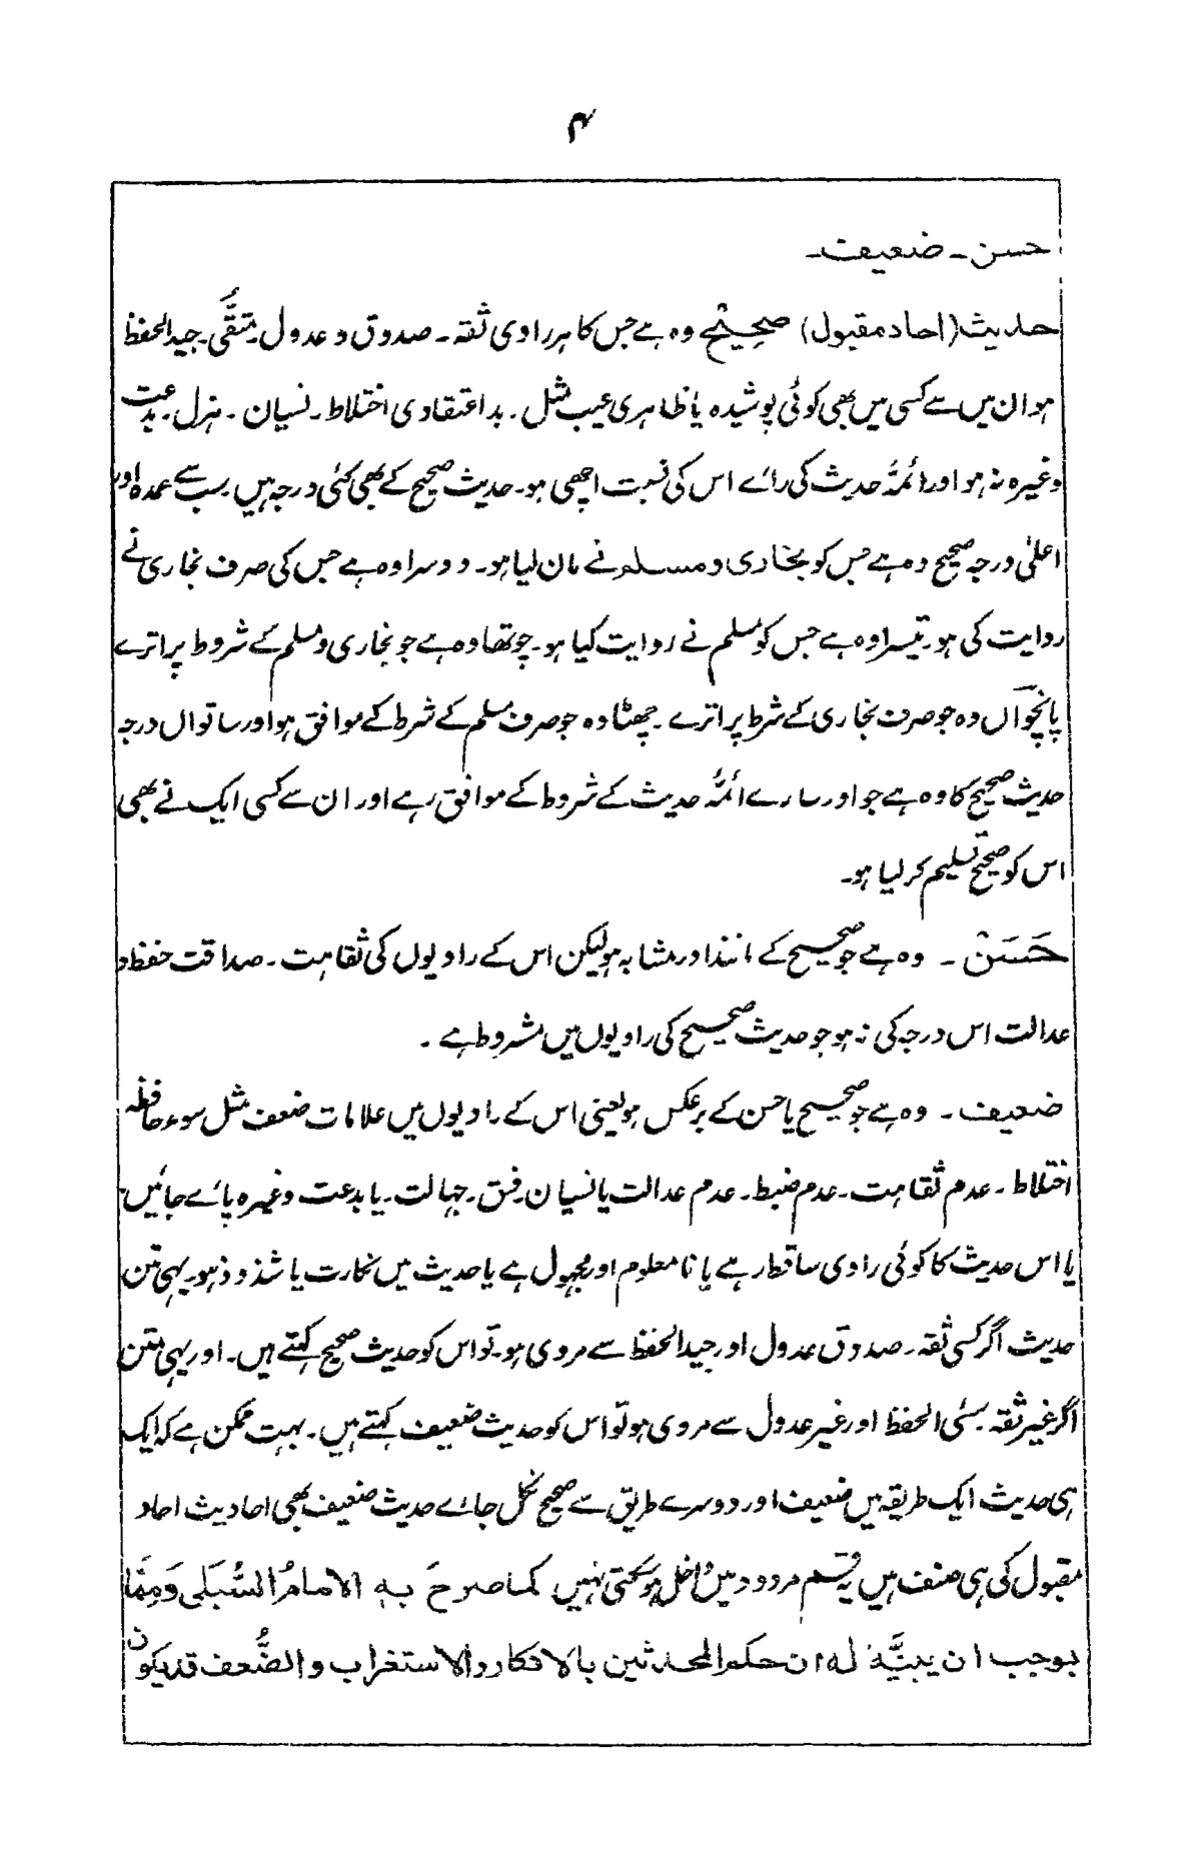 ۴
حسن۔ ضعیف۔
حدیث (احاد مقبول) صحیح وہ ہے جس کا ہر راوی ثقہ۔ صدوق و عدول۔ متقی۔ جید الحفظ
ہو ان میں سے کسی میں بھی کوئی پوشیدہ یا ظاہری عیب مثل۔ بد اعتقادی اختلاط۔ نسیان۔ ہزل۔ بدعت
وغیرہ نہ ہو اور ائمہ حدیث کی رائے اس کی نسبت اچھی ہو۔ حدیث صحیح کے بھی کئی درجہ ہیں سب سے عمدہ اور
اعلیٰ درجہ صحیح وہ ہے جس کو بخاری و مسلم نے مان لیا ہو۔ دوسرا وہ ہے جس کی صرف بخاری نے
روایت کی ہو۔ تیسرا وہ ہے جس کو مسلم نے روایت کیا ہو۔ چوتھا وہ ہے جو بخاری و مسلم کے شروط پر اترے
پانچواں وہ جو صرف بخاری کے شرط پر اترے۔ چھٹا وہ جو صرف مسلم کے شرط کے موافق ہو اور ساتواں درجہ
حدیث صحیح کا وہ ہے جو اور سارے ائمہ حدیث کے شروط کے موافق رہے اور ان سے کسی ایک نے بھی
اس کو صحیح تسلیم کر لیا ہو۔
حَسَنْ۔ وہ ہے جو صحیح کے مانند اور مشابہ ہو لیکن اس کے راویوں کی ثقاہت۔ صداقت حفظ و
عدالت اس درجہ کی نہ ہو جو حدیث صحیح کی راویوں میں مشروط ہے۔
ضعیف۔ وہ ہے جو صحیح یا حسن کے برعکس ہو یعنی اس کے راویوں میں علامات ضعف مثل سوء حافظہ
اختلاط۔ عدم ثقاہت۔ عدم ضبط۔ عدم عدالت یا نسیان فسق۔ جہالت۔ یا بدعت وغیرہ پائے جائیں
یا اس حدیث کا کوئی راوی ساقط رہے یا نا معلوم اور مجہول ہے یا حدیث میں نکارت یا شذوذ ہو۔ یہی متن
حدیث اگر کسی ثقہ۔ صدوق عدول اور جید الحفظ سے مروی ہو۔ تو اس کو حدیث صحیح کہتے ہیں۔ اور یہی متن
اگر غیر ثقہ۔ سئی الحفظ اور غیر عدول سے مروی ہو تو اس کو حدیث ضعیف کہتے ہیں۔ بہت ممکن ہے کہ ایک
ہی حدیث ایک طریقہ میں ضعیف اور دوسرے طریق سے صحیح نکل جائے حدیث ضعیف بھی احادیث احاد
مقبول کی ہی صنف ہیں یہ قسم مردود میں داخل ہو سکتی نہیں کما صرح بہ الامامُ السُّبکی وَ مِمَّا
یوجب ان یبیَّنہ لہ ان حکم المحدثین بالانکار والاستغراب والضُّعف قد یکون